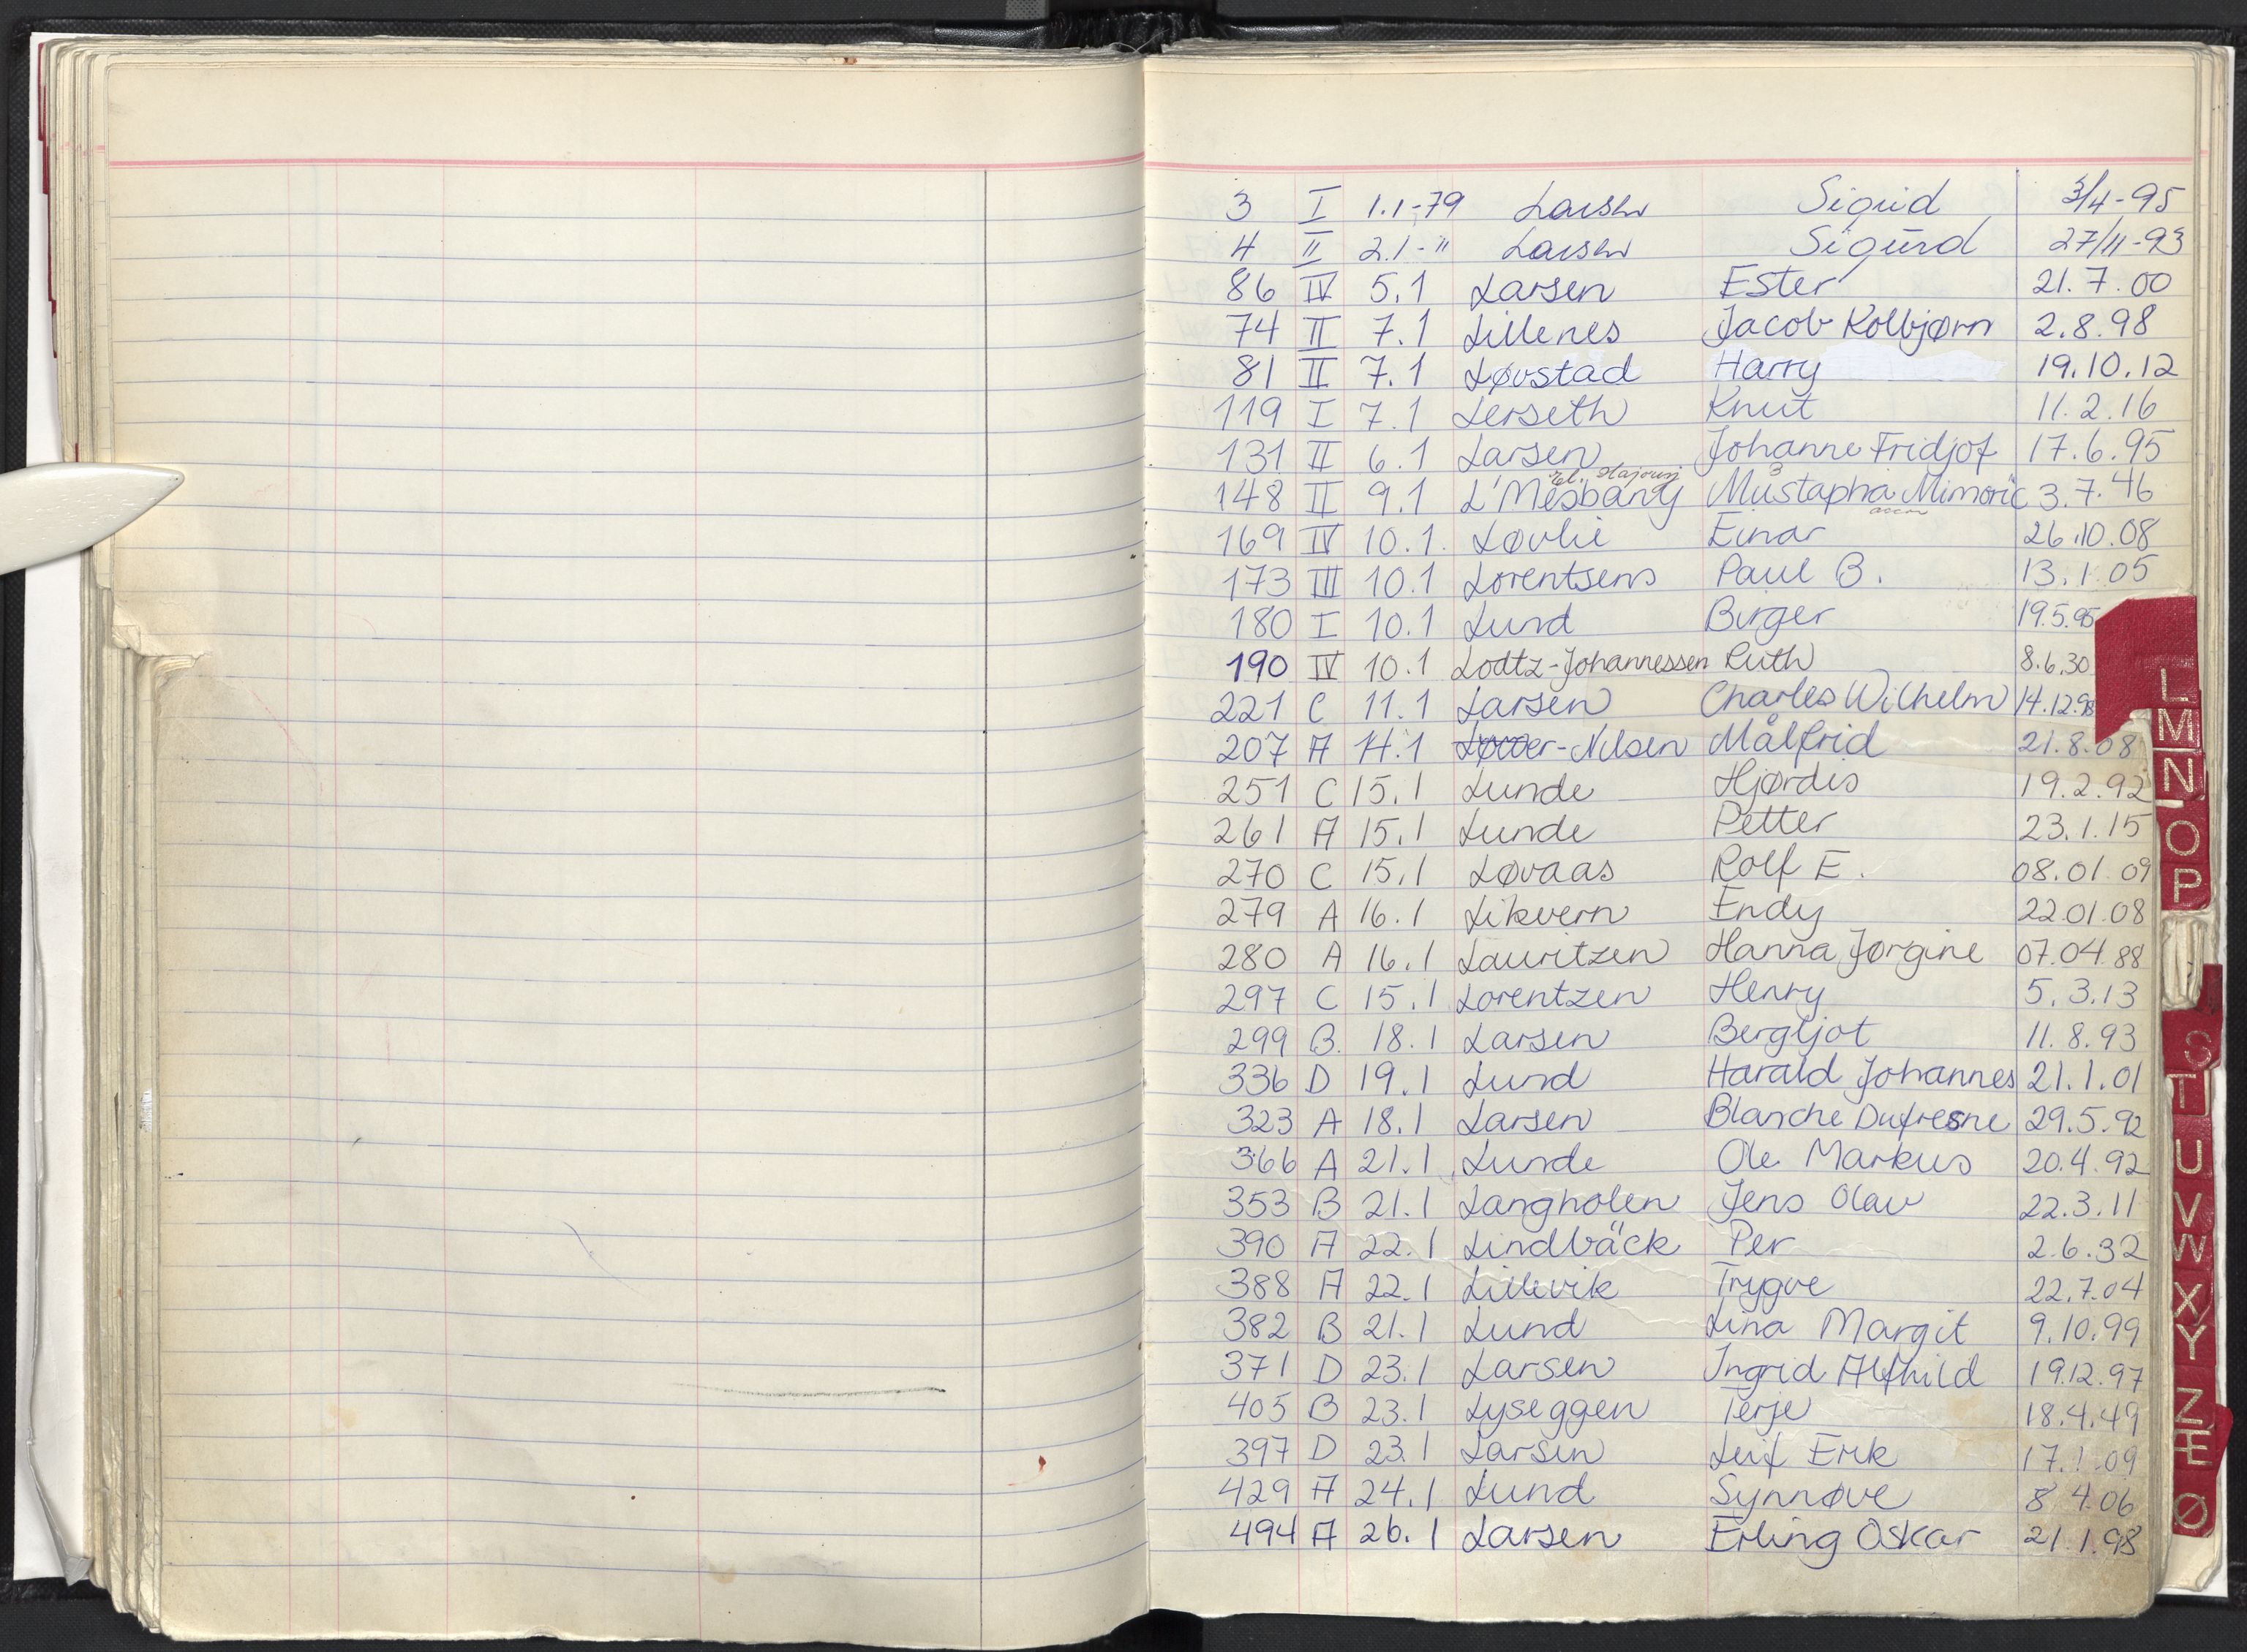 3 I 1.1-79 Larsen Sigrid 3/4-95
4 II 2.1-" Larsen Sigurd 27/11-93
86 IV 5.1 Larsen Ester 21.7.00
74 II 7.1 Lillenes Jacob Kolbjørn 2.8.98
81 II 7.1 Løvstad Harry 19.10.12
119 I 7.1 Lerseth Knut 11.2.16
131 II 6.1 Larsen Johanne Fridjof 17.6.95
148 II 9.1 L'Mesbany Mustapha 3.7.46
169 IV 10.1. Løvlie Einar 26.10.08
173 III 10.1 Lorentsens Paul B. 13.1.05
180 I 10.1 Lund Birger 19.5.95
190 IV 10.1 Lodtz-Johannessen Ruth 8.6.30
221 C 11.1 Larsen Charles Wilhelm 14.12.98
207 A 11.1 Løver-Nilsen Målfrid 21.8.08
251 C 15.1 Lunde Hjørdis 19.2.92
261 A 15.1 Lunde Petter 23.1.15
270 C 15.1 Løvaas Rolf E. 08.01.09
279 A 16.1 Likvern Endy 22.01.08
280 A 16.1 Lauritzen Hanna Jørgine 07.04.88
297 C 15.1 Lorentzen Henry 5.3.13
299 B. 18.1 Larsen Bergljot 11.8.93
336 D 19.1 Lund Harald Johannes 21.1.01
323 A 18.1 Larsen Blanche Dufresne 29.5.92
366 A 21.1 Lunde Ole Markus 20.4.92
353 B 21.1 Langholen Jens Olav 22.3.11
390 A 22.1 Lindbäck Per 2.6.32
388 A 22.1 Lillevik Trygve 22.7.04
382 B 21.1 Lund Lina Margit 9.10.99
371 D 23.1 Larsen Ingrid Alfhild 19.12.97
405 B 23.1 Lyseggen Terje 18.4.49
397 D 23.1 Larsen Leif Erik 17.1.09
429 A 24.1 Lund Synnøve 8.4.06
494 A 26.1 Larsen Erling Oskar 21.1.98
L
M
N
O
P
S
T
U
V
W
X
Y
Z
Æ
Ø